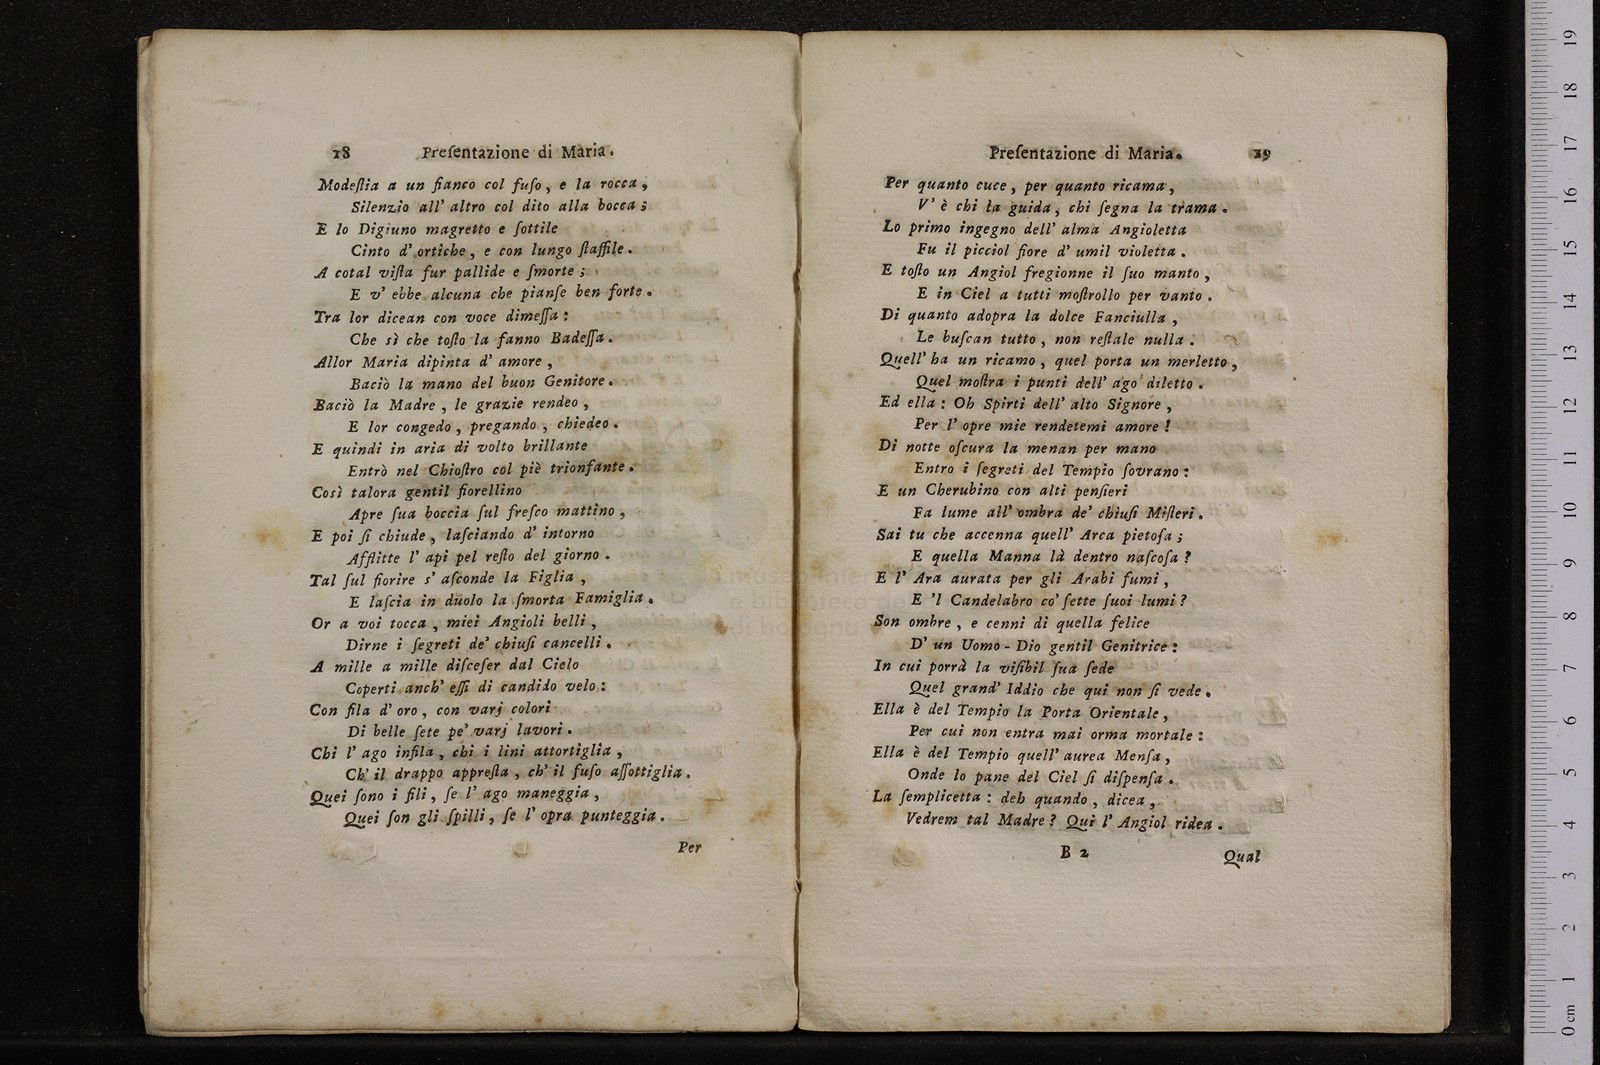 18 Preſentazione di Maria.
Modeſtia a un fianco col fuſo, e la rocca,
Silenzio all' altro col dito alla bocca;
E lo Digiuno magretto e ſottile
Cinto d' ortiche, e con lungo ſtaffile.
A cotal viſta fur pallide e ſmorte;
E v' ebbe alcuna che pianſe ben forte.
Tra lor dicean con voce dimeſſa:
Che sì che toſto la fanno Badeſſa.
Allor Maria dipinta d' amore,
Baciò la mano del buon Genitore.
Baciò la Madre, le grazie rendeo,
E lor congedo, pregando, chiedeo.
E quindi in aria di volto brillante
Entrò nel Chioſtro col piè trionfante.
Così talora gentil fiorellino
Apre ſua boccia ſul freſco mattino,
E poi ſi chiude, laſciando d' intorno
Afflitte l' api pel reſto del giorno.
Tal ſul fiorire s' aſconde la Figlia,
E laſcia in duolo la ſmorta Famiglia.
Or a voi tocca, miei Angioli belli,
Dirne i ſegreti de' chiuſi cancelli.
A mille a mille diſceſer dal Cielo
Coperti anch' eſſi di candido velo:
Con fila d' oro, con varj colori
Di belle ſete pe' varj lavori.
Chi l' ago infila, chi i lini attortiglia,
Ch' il drappo appreſta, ch' il fuſo aſſottiglia.
Quei ſono i fili, ſe l' ago maneggia,
Quei ſon gli ſpilli, ſe l' opra punteggia.
Per
Preſentazione di Maria. 19
Per quanto cuce, per quanto ricama,
V' è chi la guida, chi ſegna la trama.
Lo primo ingegno dell' alma Angioletta
Fu il picciol fiore d' umil violetta.
E toſto un Angiol fregionne il ſuo manto,
E in Ciel a tutti moſtrollo per vanto.
Di quanto adopra la dolce Fanciulla,
Le buſcan tutto, non reſtale nulla.
Quell' ha un ricamo, quel porta un merletto,
Quel moſtra i punti dell' ago diletto.
Ed ella: Oh Spirti dell' alto Signore,
Per l' opre mie rendetemi amore!
Di notte oſcura la menan per mano
Entro i ſegreti del Tempio ſovrano:
E un Cherubino con alti penſieri
Fa lume all' ombra de' chiuſi Miſteri.
Sai tu che accenna quell' Arca pietoſa;
E quella Manna là dentro naſcoſa?
E l' Ara aurata per gli Arabi fumi,
E 'l Candelabro co' ſette ſuoi lumi?
Son ombre, e cenni di quella felice
D' un Uomo-Dio gentil Genitrice:
In cui porrà la viſibil ſua ſede
Quel grand' Iddio che qui non ſi vede.
Ella è del Tempio la Porta Orientale,
Per cui non entra mai orma mortale:
Ella è del Tempio quell' aurea Menſa,
Onde lo pane del Ciel ſi diſpenſa.
La ſemplicetta: deh quando, dicea,
Vedrem tal Madre? Qui l' Angiol ridea.
B 2 Qual
0 cm 1 2 3 4 5 6 7 8 9 10 11 12 13 14 15 16 17 18 19